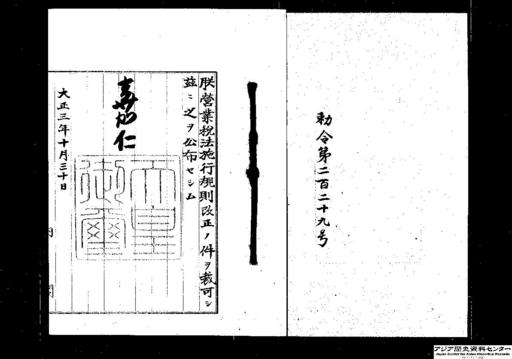 勅令第二百二十九号
朕営業税法施行規則改正ノ件ヲ裁可シ
茲ニ之ヲ公布セシム
嘉仁
天皇御璽
大正三年十月三十日
アジア歴史資料センター
Japan Center for Asian Historical Records